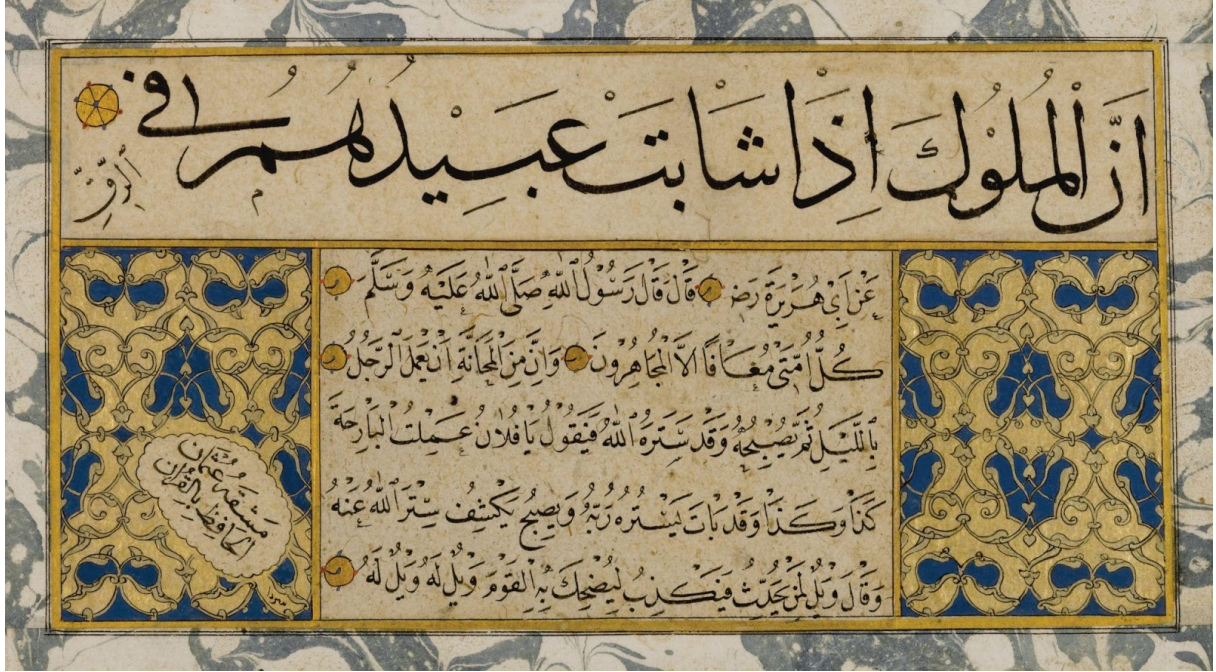 اِنَّ الْمُلُوْكَ اِذَا شَابَتْ عَبِيْدُهُمُ فى
الرِّقِّ
عَنْ اَبِى هُرَيْرَةَ رَضِ قَالَ قَالَ رَسُوْلُ اللّٰهِ صَلَّى اللّٰهُ عَلَيْهِ وَسَلَّمَ
كُلُّ اُمَّتِى مُعَافًا اِلَّا الْمُجَاهِرُونَ وَاِنَّ مِنَ الْمَجَانَّةِ اَنْ يَعْمَلَ الرَّجُلُ
بِاللَّيْلِ ثُمَّ يُصْبِحُهُ وَقَدْ سَتَرَهُ اللّٰهُ فَيَقُوْلُ يَا فُلَانُ عَمِلْتُ الْبَارِحَةَ
كَذَا وَكَذَا وَقَدْ بَاتَ يَسْتُرُهُ رَبُّهُ وَيُصْبِحُ يَكْشِفُ سِتْرَ اللّٰهِ عَنْهُ
وَقَالَ وَيْلٌ لِمَنْ يُحَدِّثُ فَيَكْذِبُ لِيُضْحِكَ بِهِ الْقَوْمَ وَيْلٌ لَهُ وَيْلٌ لَهُ
مَشَقَهُ عُثْمَان
الحَافِظِ بِالقُرْآنِ